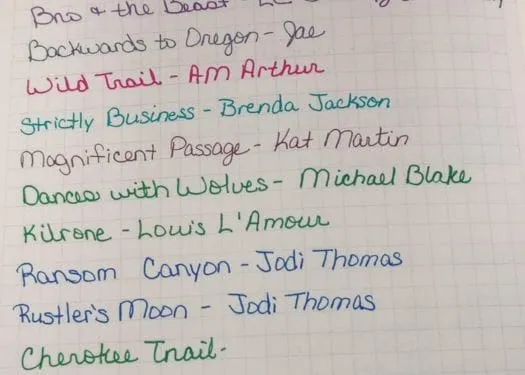 Bro & the Beast -
Backwards to Oregon - Jae
Wild Trail - AM Arthur
Strictly Business - Brenda Jackson
Magnificent Passage - Kat Martin
Dances with Wolves - Michael Blake
Kilrone - Louis L'Amour
Ransom Canyon - Jodi Thomas
Rustler's Moon - Jodi Thomas
Cherokee Trail -